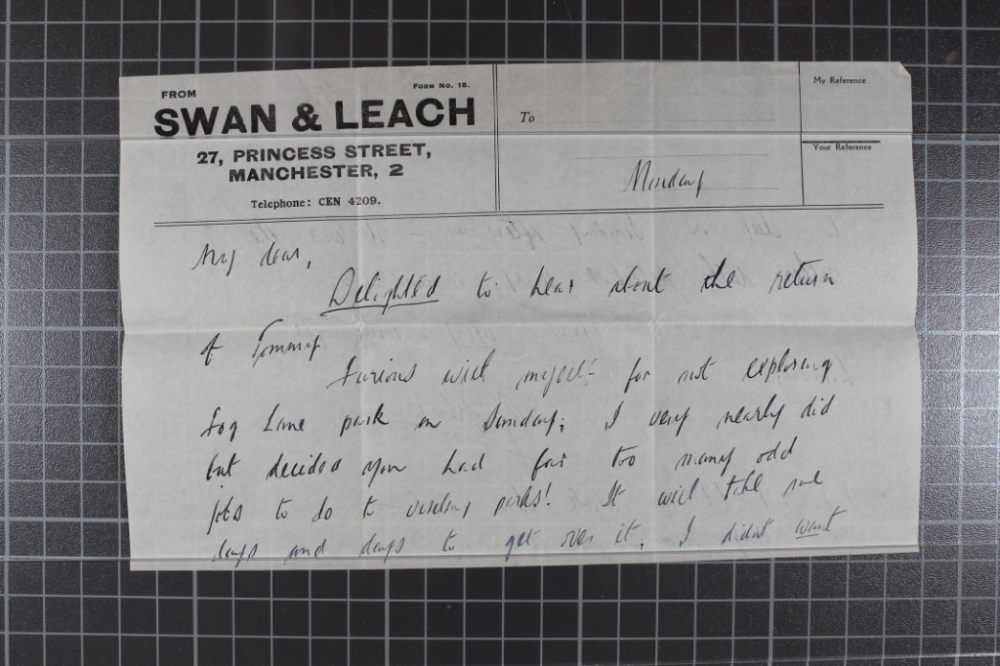 FROM
FORM No. 18.
SWAN & LEACH
27, PRINCESS STREET,
MANCHESTER, 2
Telephone: CEN 4209.
To
My Reference
Your Reference
Monday
My dear,
Delighted to hear about the return
of Tommy
Furious with myself for not exploring
Fog Lane park on Sunday; I very nearly did
but decided you had far too many odd
jobs to do to visiting parks! It will take me
days and days to get over it. I didnt want